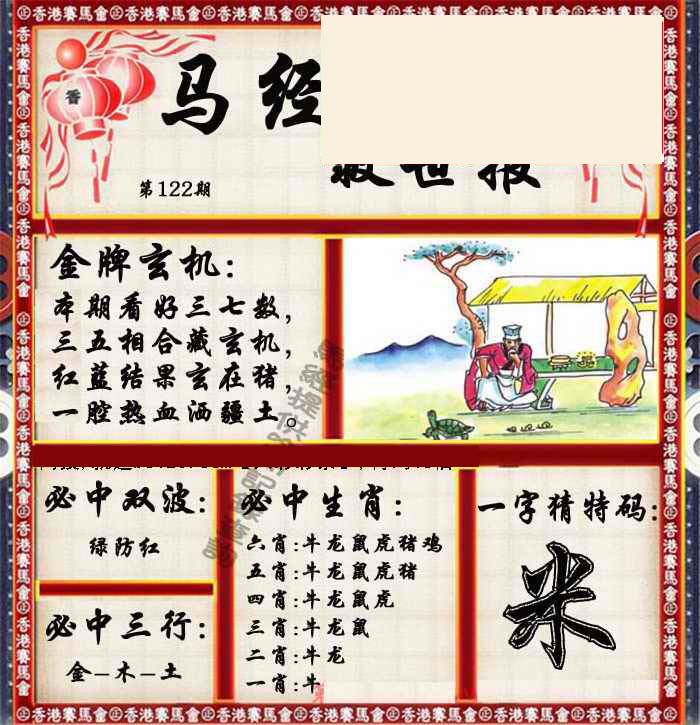 香港賽馬會
香
马经
救世报
第122期
金牌玄机:
本期看好三七数,
三五相合藏玄机,
红蓝结果玄在猪,
一腔热血洒疆土。
必中双波:
绿防红
必中三行:
金-木-土
必中生肖:
六肖:牛龙鼠虎猪鸡
五肖:牛龙鼠虎猪
四肖:牛龙鼠虎
三肖:牛龙鼠
二肖:牛龙
一肖:牛
一字猜特码:
米